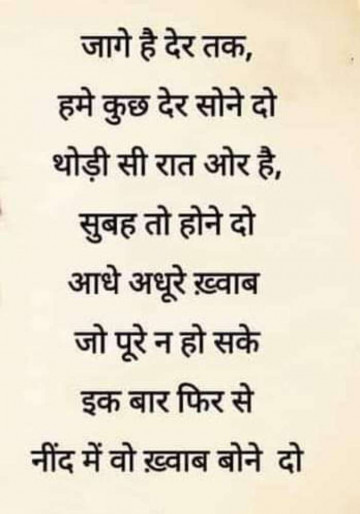 जागे है देर तक,
हमे कुछ देर सोने दो
थोड़ी सी रात ओर है,
सुबह तो होने दो
आधे अधूरे ख़्वाब
जो पूरे न हो सके
इक बार फिर से
नींद में वो ख़्वाब बोने दो